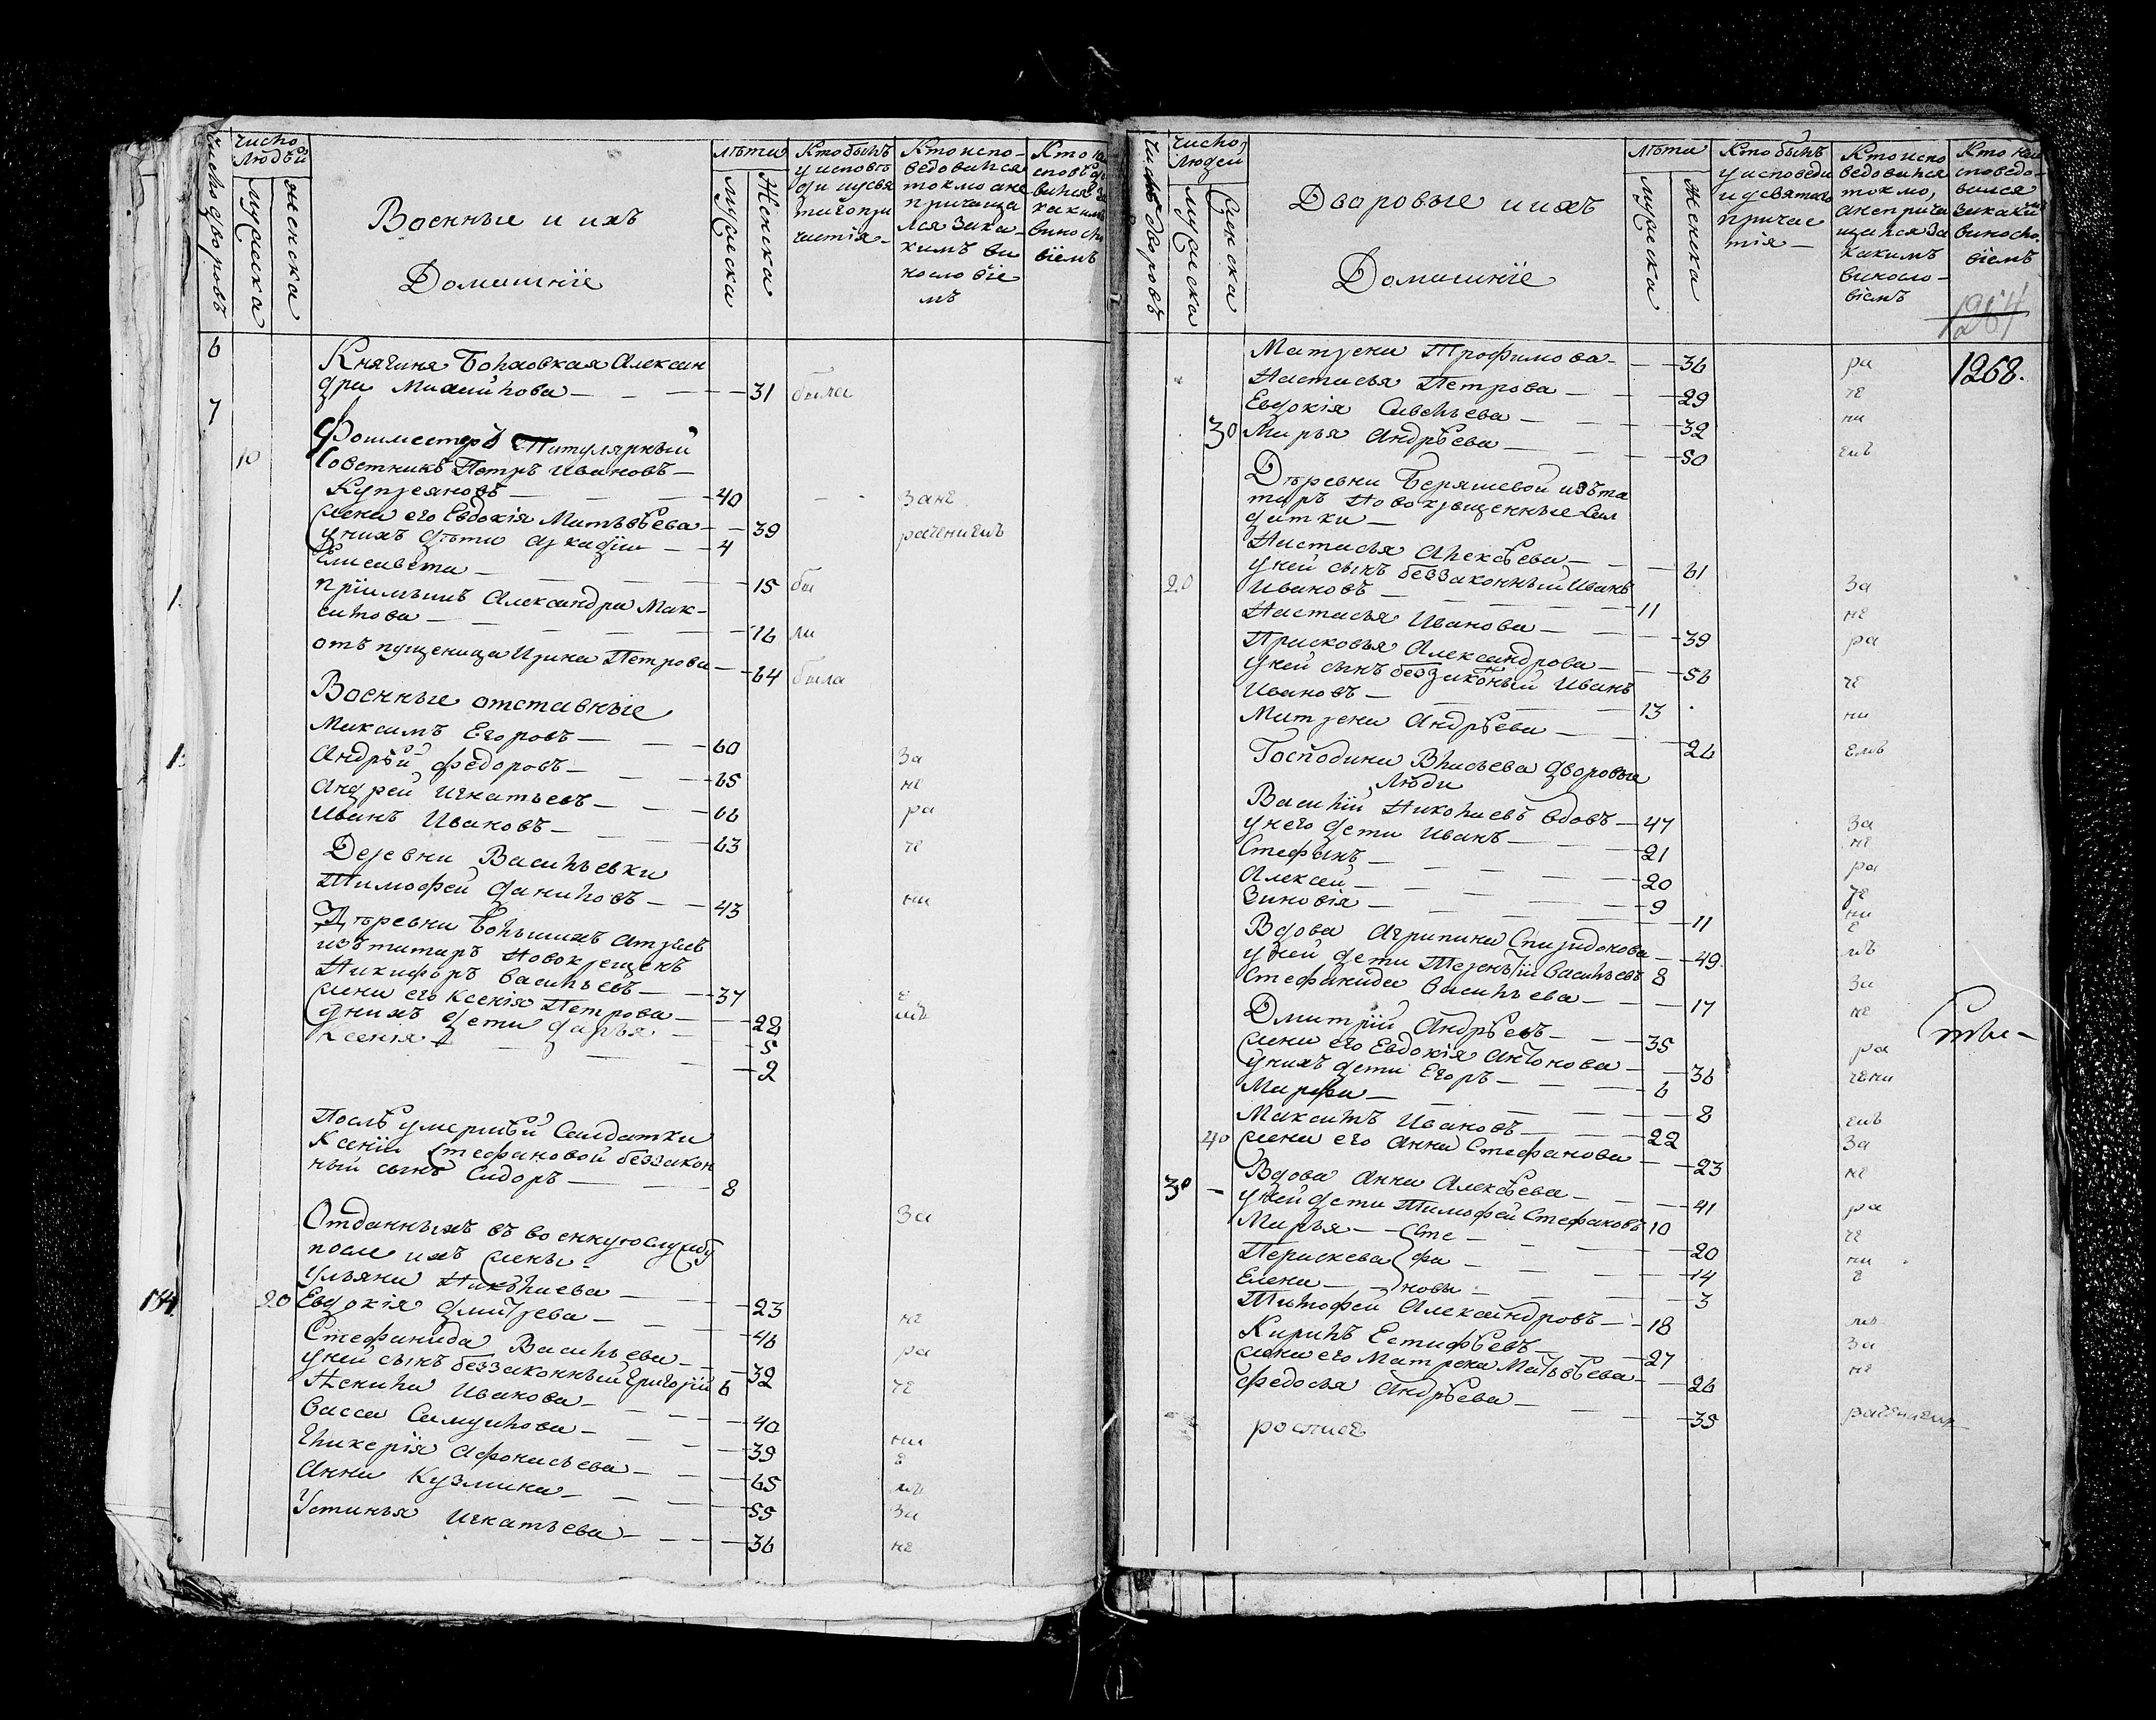 Число дворовъ
Число людей
мужеска
женска
Военные и ихъ
Домашніе
лѣта
мужеска
Женска
Кто былъ
у исповѣ
ди и свя
таго при
частія
Кто испо-
ведовался
токмо а не
прича­ща
лся за ка-
кимъ ви
нословіе
мъ
6
Княгиня Болховская Алексан
дра Михайлова — 31 была
7
Фошместеръ Титулярный
10 Советникъ Петръ Ивановъ —
Купреяновъ — 40 за не
жена его Евдокія Матвѣева — 39 рачениемъ
у нихъ дѣти Аркадіи — 4
Елисавета — 15 бы
1. пріимышъ Александра Мак-
симова — 16 ли
отъпущеница Ирина Петрова — 64 была
Военные отставные
Максимъ Егоровъ — 60 за
1. Андрѣй Федоровъ — 65 не
Андрей Игнатьевъ — 66 ра
Иванъ Ивановъ — 63 че
Деревни Васильевки
Тимофей Даниловъ — 43 ни
Дѣревни Большихъ Атряс
изъ татаръ Новокрещенъ
Никифоръ Васильевъ — 37 е
жена его Ксенія Петрова — 28 мъ
у нихъ дети Дарья — 5
Ксенія — 2
Послѣ умершѣй Салдатки
Ксеніи Стефановой беззакон
ный сынъ Сидоръ — 8
за
Отданныхъ въ военную службу
после ихъ жены
Ульяна Николаева — 23 не
20 Евдокія Дмитрева — 46 ра
Стефанида Васильева — 32
у ней сынъ беззаконный Григорій 6 че
Ненила Иванова — 40
Васса Самуилова — 39 ни
Гликерія Афонасьева — 65 е
Анна Кузмина — 55 мъ за
Устинья Игнатьева — 36 не
Число дворовъ
Число людей
мужеска
женска
Дворовые и ихъ
Домашніе
лѣта
мужеска
женска
Кто былъ
у исповеди
и святаго
причас
тія —
Кто испо
ведовался
токмо,
а не прича
щался за
какимъ
виносло-
віемъ
Кто не и
споведо-
вался
за какимъ
виносло.
віемъ
1264
1268.
Матрена Трофимова — 36 ра
Настасья Петрова — 29 че
Евдокія Савельева — 32 ни
30 Марья Андрѣева — 50 емъ
Дѣревни Беряшевой изъ та
таръ Новокрещенные Сал
датки —
Настасья Алексѣева — 61
20 у ней сынъ беззаконный Иванъ за
Ивановъ — 11 не
Настасья Иванова — 39 ра
Прасковья Александрова — 56
у ней сынъ беззаконый Иванъ че
Ивановъ — 13 ни
Матрена Андрѣева — 26 емъ
Господина Власьева дворовые
Люди
Василій Николаевъ вдовъ — 47 за
у него дети Иванъ — 21 не
Стефанъ — 20 ра
Алексей — 9 че
Зиновія — 11 ни е
Вдова Агрипина Спиридонова — 49 мъ
у ней дети Терентій Васильевъ 8 за
Стефанида Васильева — 17 не
Дмитрій Андрѣевъ — 35
жена его Евдокія Антонова — 36 ра
у нихъ дети Егоръ — 6 чени
Марфа — 8
Максимъ Ивановъ — 22 емъ
40 жена его Анна Стефанова — 23 за
Вдова Анна Алексѣева — 41 не
30 у ней дети Тимофей Стефановъ 10 ра
Марья — Сте — 20 че
Параскева фа — 14 ни
Елена — новы — 3 е
Тимофей Александровъ — 18 мъ
Кирилъ Естифѣевъ — 27 за
жена его Матрена Матвѣева — 26 не
Федосья Андрѣева — 35 рачениемъ
росписе